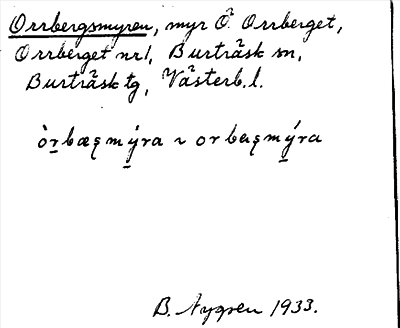 Orrbergsmyren, myr Ö Orrberget,
Orrberget nr 1, Burträsk sn,
Burträsk tg, Västerb. l.
òr̲bæşmý̲ra ~ orbaşmý̲ra
B. Nygren 1933.